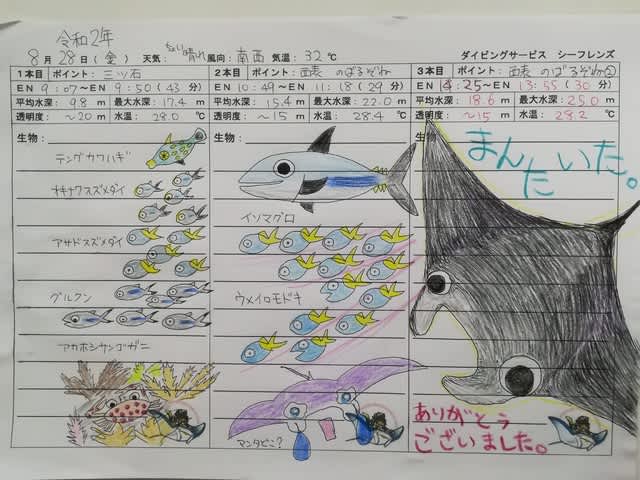 令和2年
8月28日(金) 天気:ちょい晴れ 風向:南西 気温:32℃ ダイビングサービス シーフレンズ
1本目 ポイント: 三ツ石
EN 9:07~EN 9:50(43分)
平均水深: 9.8 m 最大水深: 17.4 m
透明度: ~20 m 水温: 28.0 ℃
生物:
テングカワハギ
オキナワスズメダイ
アサドスズメダイ
グルクン
アカホシサンゴガニ
2本目 ポイント: 西表 のばるぞね
EN 10:49~EN 11:18(29分)
平均水深: 15.4 m 最大水深: 22.0 m
透明度: ~15 m 水温: 28.4 ℃
生物:
イソマグロ
ウメイロモドキ
マンタどこ?
3本目 ポイント: 西表 のばるぞね②
25~EN 13:55(30分)
平均水深: 18.6 m 最大水深: 25.0 m
透明度: ~15 m 水温: 28.2 ℃
生物:
まんた
いた。
ありがとう
ございました。